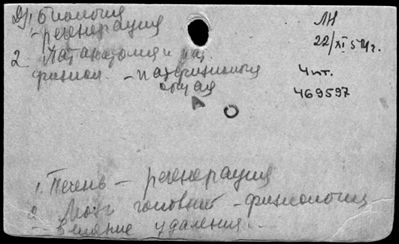 1. биология
- регенерация
2. Пат. анатомия и пат.
физиол. - патфизиология
общая
ЛН
22/XI 54 г.
Чит.
469597
1. Печень - регенерация
2. Мозг головной - физиология
- влияние удаления.